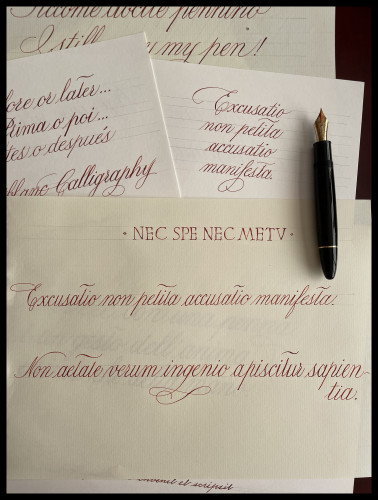 I still my pen!
or later...
Prima o poi...
o después
Calligraphy
Excusatio
non petita
accusatio
manifesta.
· NEC SPE NEC METV ·
Excusatio non petita accusatio manifesta.
Non aetate verum ingenio apiscitur sapien-
tia.
et scripsit